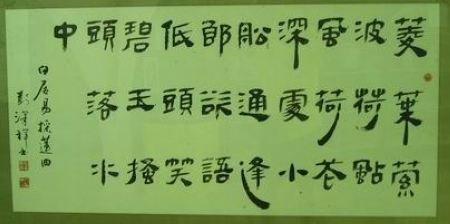 菱葉縈
波荷點
風荷花
深處小
舩通逢
郎欲語
低頭笑
碧玉搔
頭落水
中
白居易採蓮曲
彭澤祥书